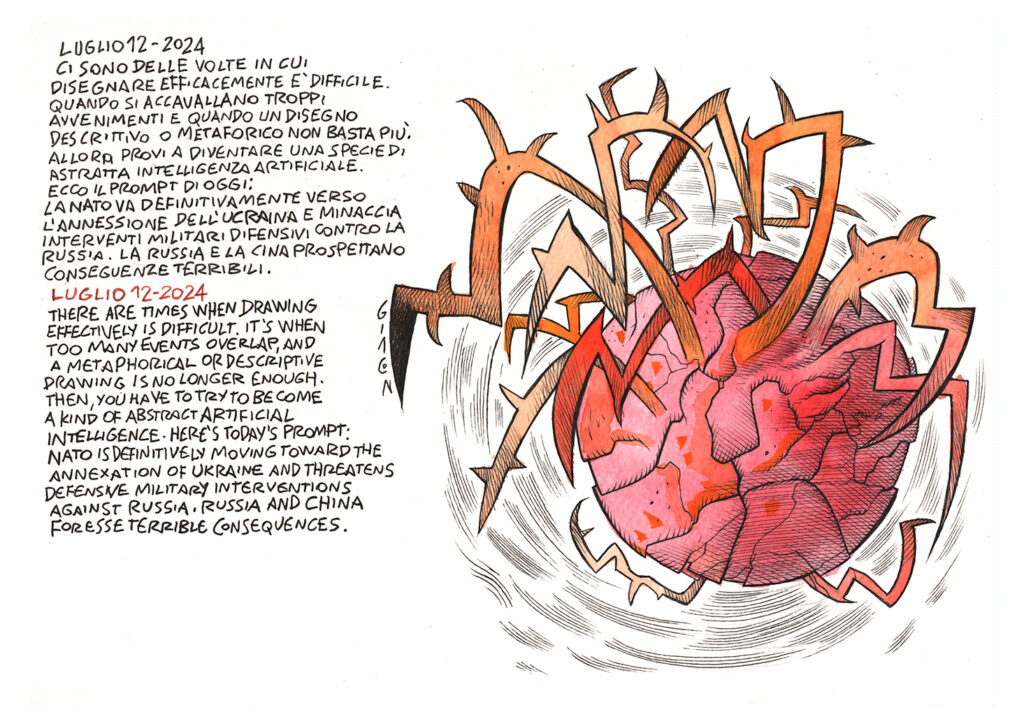 LUGLIO 12-2024
CI SONO DELLE VOLTE IN CUI
DISEGNARE EFFICACEMENTE E' DIFFICILE.
QUANDO SI ACCAVALLANO TROPPI
AVVENIMENTI E QUANDO UN DISEGNO
DESCRITTIVO O METAFORICO NON BASTA PIU'.
ALLORA PROVI A DIVENTARE UNA SPECIE DI
ASTRATTA INTELLIGENZA ARTIFICIALE.
ECCO IL PROMPT DI OGGI:
LA NATO VA DEFINITIVAMENTE VERSO
L'ANNESSIONE DELL'UCRAINA E MINACCIA
INTERVENTI MILITARI DIFENSIVI CONTRO LA
RUSSIA. LA RUSSIA E LA CINA PROSPETTANO
CONSEGUENZE TERRIBILI.
LUGLIO 12-2024
THERE ARE TIMES WHEN DRAWING
EFFECTIVELY IS DIFFICULT. IT'S WHEN
TOO MANY EVENTS OVERLAP, AND
A METAPHORICAL OR DESCRIPTIVE
DRAWING IS NO LONGER ENOUGH.
THEN, YOU HAVE TO TRY TO BECOME
A KIND OF ABSTRACT ARTIFICIAL
INTELLIGENCE. HERE'S TODAY'S PROMPT:
NATO IS DEFINITIVELY MOVING TOWARD THE
ANNEXATION OF UKRAINE AND THREATENS
DEFENSIVE MILITARY INTERVENTIONS
AGAINST RUSSIA. RUSSIA AND CHINA
FORESSE TERRIBLE CONSEQUENCES.